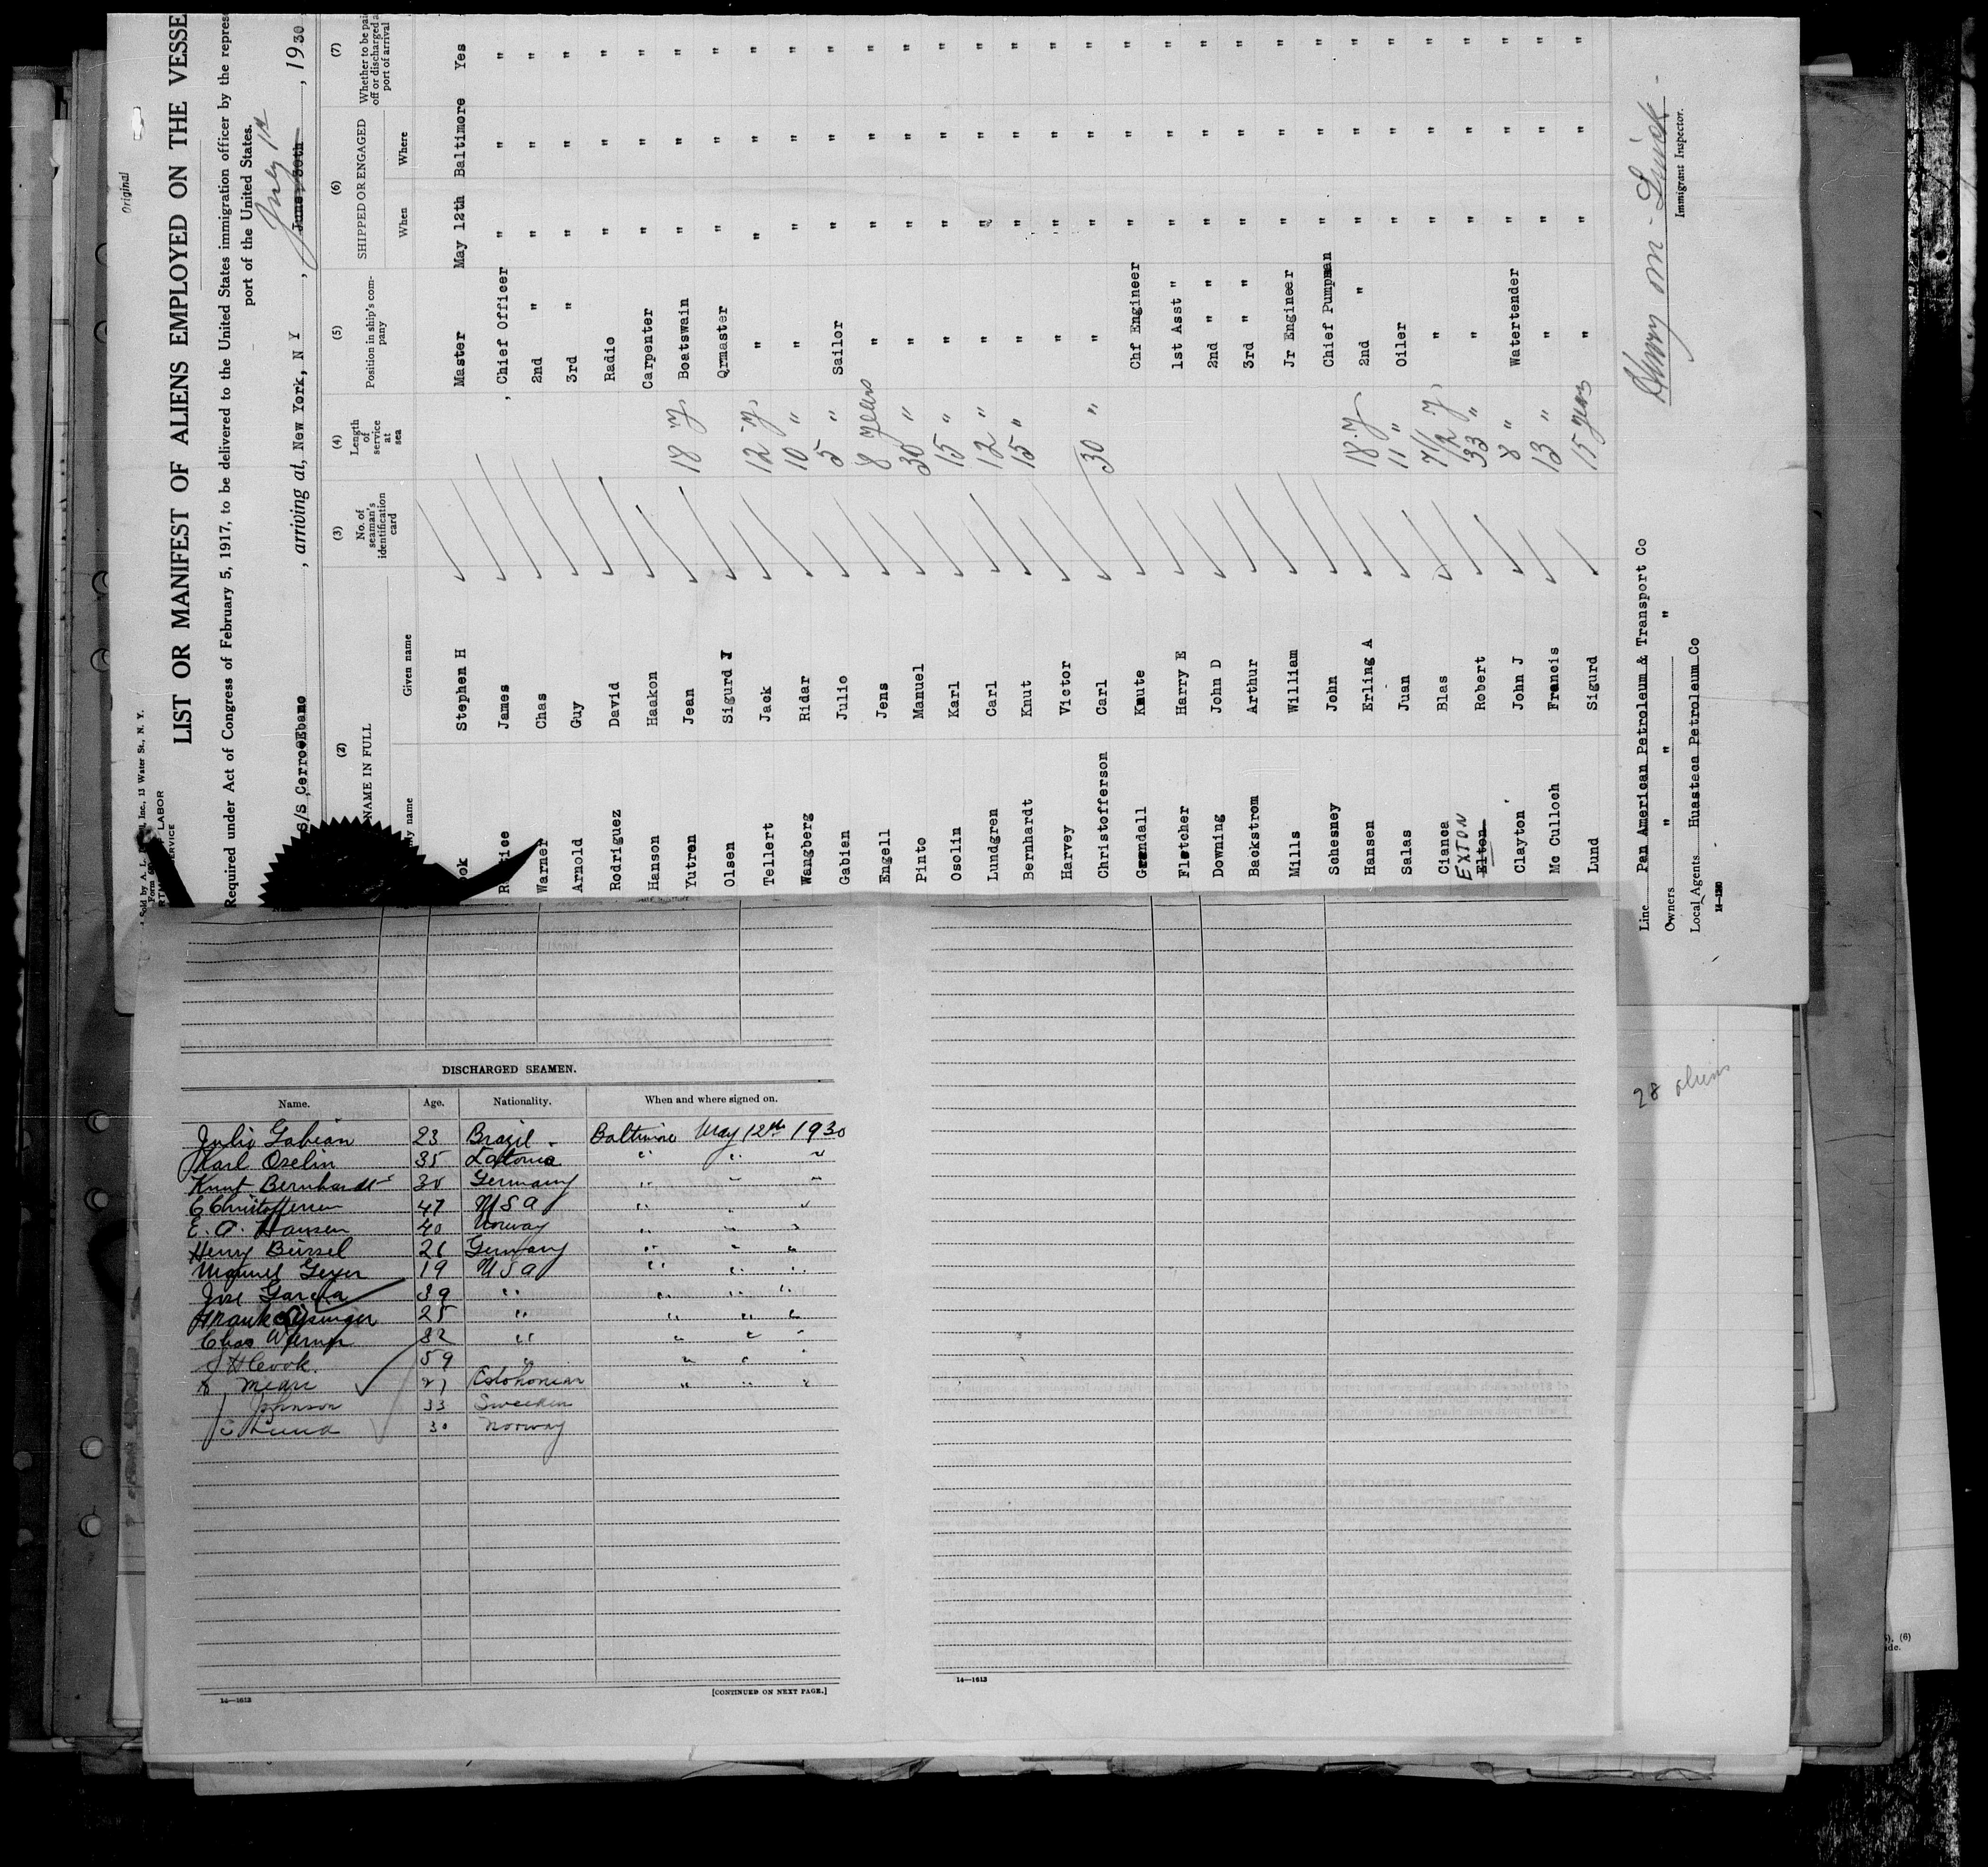 Original
Sold by A. L. Inc., 13 Water St., N. Y.
LABOR
SERVICE
LIST OR MANIFEST OF ALIENS EMPLOYED ON THE VESSE
Required under Act of Congress of February 5, 1917, to be delivered to the United States immigration officer by the repres
port of the United States.
July 1st
S/S CerroeEbano , arriving at, New York, N Y , June 30th , 1930
(2) (3) (4) (5) (6) (7)
NAME IN FULL No. of seaman's identification card Length of service at sea Position in ship's company SHIPPED OR ENGAGED Whether to be paid off or discharged at port of arrival
Given name When Where
ook Stephen H Master May 12th Baltimore Yes
James Chief Officer " " "
Warner Chas 2nd " " " "
Arnold Guy 3rd " " " "
Rodriguez David Radio " " "
Hanson Haakon Carpenter " " "
Yutren Jean 18 y Boatswain " " "
Olsen Sigurd Qrmaster " " "
Tellert Jack 12 y " " " "
Wangberg Ridar 10 " " " " "
Gabian Julio 5 " Sailor " " "
Engell Jens 8 years " " " "
Pinto Manuel 30 " " " " "
Osolin Karl 15 " " " " "
Lundgren Carl 12 " " " " "
Bernhardt Knut 15 " " " " "
Harvey Victor " " " "
Christofferson Carl 30 " " " " "
Knute Chf Engineer " " "
Fletcher Harry E 1st Asst " " " "
Downing John D 2nd " " " " "
Backstrom Arthur 3rd " " " " "
Mills William Jr Engineer " " "
Schesney John Chief Pumpman " " "
Hansen Erling A 18 y 2nd " " " "
Salas Juan 11 " Oiler " " "
Cianca Blas 7 1/2 y " " " "
EXTON
Elton Robert 33 " " " " "
Clayton John J 8 " Watertender " " "
Mc Culloch Francis 13 " " " " "
Lund Sigurd 15 years " " " "
Line Pan American Petroleum & Transport Co
Owners " " "
Local Agents Huasteca Petroleum Co
Immigrant Inspector.
28 aliens
DISCHARGED SEAMEN.
Name. Age. Nationality. When and where signed on.
Julio Gabian 23 Brazil Baltimore May 12th 1930
Karl Oselin 35 " " "
Knut Bernhardt 30 Germany " " "
C Christoffersen 47 U S A " " "
E. A. Hansen 40 Norway " " "
Henry 26 Germany " " "
19 U S A " " "
Jose Garcia 39 " " " "
Frank 25 " " " "
Chas Warner 32 " " " "
S H Cook 59 " " " "
" " "
Johnson 33 Sweden
Lund 30 Norway
14—1613
[CONTINUED ON NEXT PAGE.]
14—1613